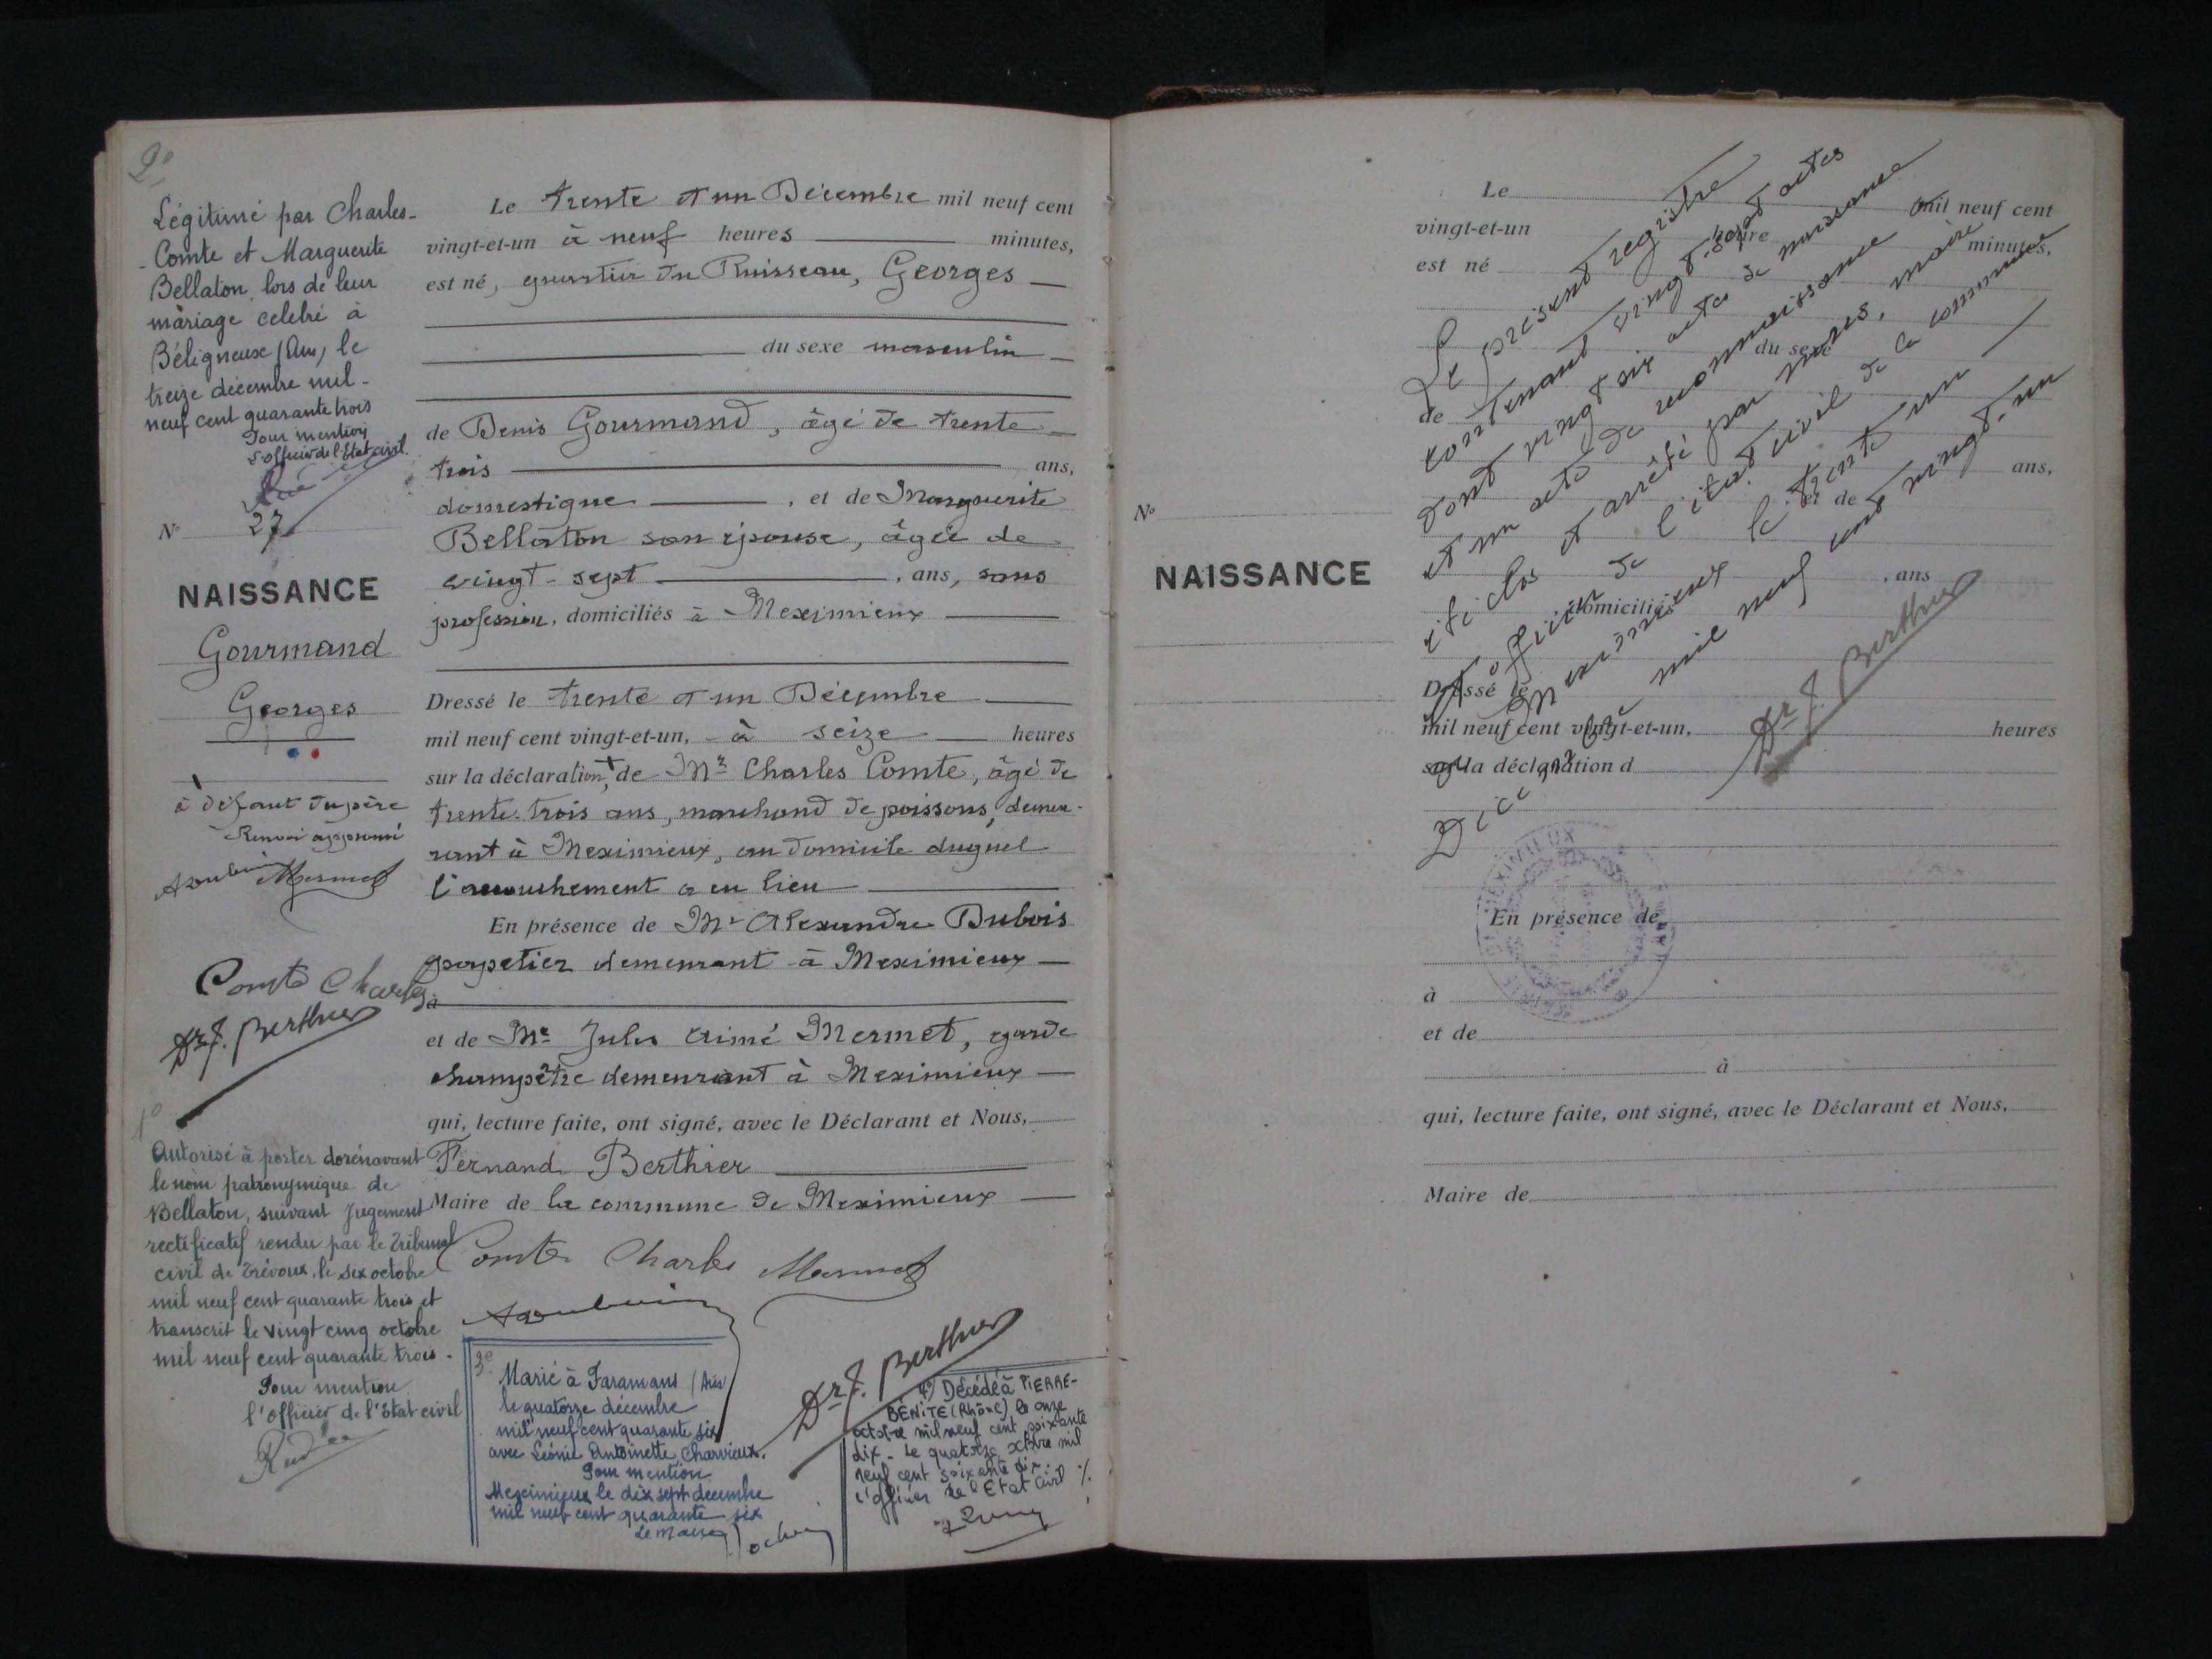 2º
Légitimé par Charles-
- Comte et Marguerite
Bellaton, lors de leur
mariage celebré à
Béligneux (Ain) le
treize décembre mil-
neuf cent quarante trois
Pour mention
L'officier de l'Etat civil.
Nº 27
NAISSANCE
Gourmand
Georges
à défaut du père
Renvoi approuvé
Mermet
Comte Charles
Dr F. Berthier
1º
Autorisé à porter dorénavant
le nom patronymique de
Bellaton, suivant Jugement
rectificatif rendu par le Tribunal
civil de Trévoux, le six octobre
mil neuf cent quarante trois et
transcrit le vingt cinq octobre
mil neuf cent quarante trois.
Pour mention
l'officier de l'Etat civil
Le trente et un Décembre mil neuf cent
vingt-et-un à neuf heures minutes,
est né, quartier du Ruisseau, Georges
du sexe masculin
de Denis Gourmand, âgé de trente
trois ans,
domestique, et de Marguerite
Bellaton son épouse, âgée de
vingt-sept, ans, sans
profession, domiciliés à Meximieux
Dressé le trente et un Décembre
mil neuf cent vingt-et-un, à seize heures
sur la déclaration, + de Mr Charles Comte, âgé de
trente-trois ans, marchand de poissons, demeu-
rant à Meximieux, au domicile duquel
l'accouchement a eu lieu
En présence de Mr Alexandre Dubois
papetier demeurant à Meximieux
à
et de Mr Jules Aimé Mermet, garde
champêtre demeurant à Meximieux
qui, lecture faite, ont signé, avec le Déclarant et Nous,
Fernand Berthier
Maire de la commune de Meximieux
Comte Charles Mermet
Dr F. Berthier
3º
Marié à Faramans (Ain)
le quatorze décembre
mil neuf cent quarante six
avec Léonie Antoinette Charvieux.
Pour mention
Meximieux le dix sept decembre
mil neuf cent quarante six
Le Maire
4º) Décédé à PIERRE-
BÉNITE (Rhône) le onze
octobre mil neuf cent soixante
dix - Le quatorze octobre mil
neuf cent soixante dix.
L'officier de l'Etat Civil %.
Nº
NAISSANCE
Le mil neuf cent
vingt-et-un heure minutes,
est né
du sexe
de
ans,
et de
, ans
domiciliés
Dressé le
mil neuf cent vingt-et-un, heures
sur la déclaration d
En présence de
à
et de
à
qui, lecture faite, ont signé, avec le Déclarant et Nous,
Maire de
Le présent registre
contenant vingt-sept actes
dont vingt six actes de naissance
et un acte de reconnaissance
été clos et arrêté par nous, maire
et officier de l'état civil de la commune
de Meximieux le trente un
Décembre mil neuf cent vingt-un
Dr F. Berthier